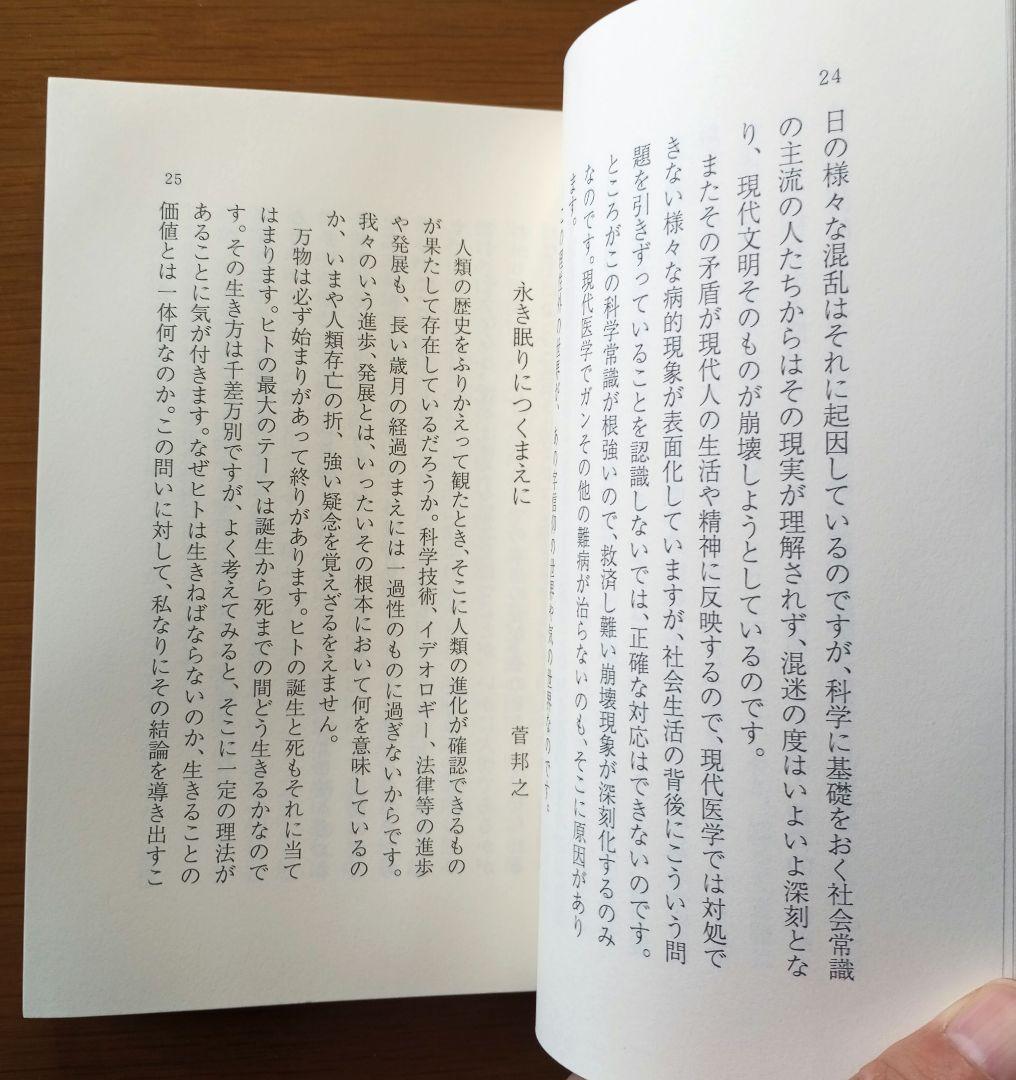 24
日の様々な混乱はそれに起因しているのですが、科学に基礎をおく社会常識
の主流の人たちからはその現実が理解されず、混迷の度はいよいよ深刻とな
り、現代文明そのものが崩壊しようとしているのです。
またその矛盾が現代人の生活や精神に反映するので、現代医学では対処で
きない様々な病的現象が表面化していますが、社会生活の背後にこういう問
題を引きずっていることを認識しないでは、正確な対応はできないのです。
ところがこの科学常識が根強いので、救済し難い崩壊現象が深刻化するのみ
なのです。現代医学でガンその他の難病が治らないのも、そこに原因があり
ます。
25
永き眠りにつくまえに
菅邦之
人類の歴史をふりかえって観たとき、そこに人類の進化が確認できるもの
が果たして存在しているだろうか。科学技術、イデオロギー、法律等の進歩
や発展も、長い歳月の経過のまえには一過性のものに過ぎないからです。
我々のいう進歩、発展とは、いったいその根本において何を意味しているの
か、いまや人類存亡の折、強い疑念を覚えざるをえません。
万物は必ず始まりがあって終りがあります。ヒトの誕生と死もそれに当て
はまります。ヒトの最大のテーマは誕生から死までの間どう生きるかなので
す。その生き方は千差万別ですが、よく考えてみると、そこに一定の理法が
あることに気が付きます。なぜヒトは生きねばならないのか、生きることの
価値とは一体何なのか。この問いに対して、私なりにその結論を導き出すこ